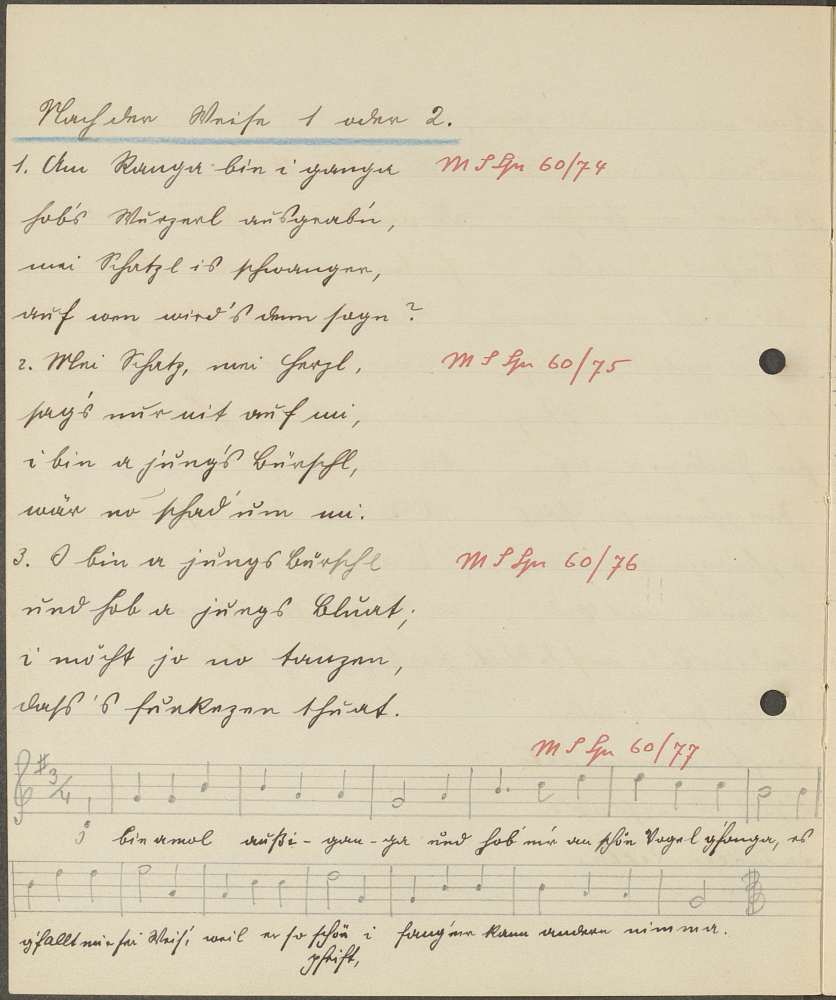 Nach der Weise 1 oder 2.
1. Am Ranga bin i ganga M S Spr 60/74
hob's Wurzerl ausgrab'n,
mei Schatzl is schwanger,
auf wen wird's denn sogn?
2. Mei Schatz, mei Herzl, M S Spr 60/75
sag's nur nit auf mi,
i bin a jung's Bürschl,
wär no schad' um mi.
3. I bin a jungs Bürschl M S Spr 60/76
und hob a jungs Bluat;
i möcht jo no tanzen,
dass 's funkezen thuat.
M S Spr 60/77
3/4
I bin amol außi-gan-ga und hob mir an schön Vogel g'fanga, es
g'fallt mir sei Weis', weil er so schön i fang mir kann andern nimma.
pfeift,